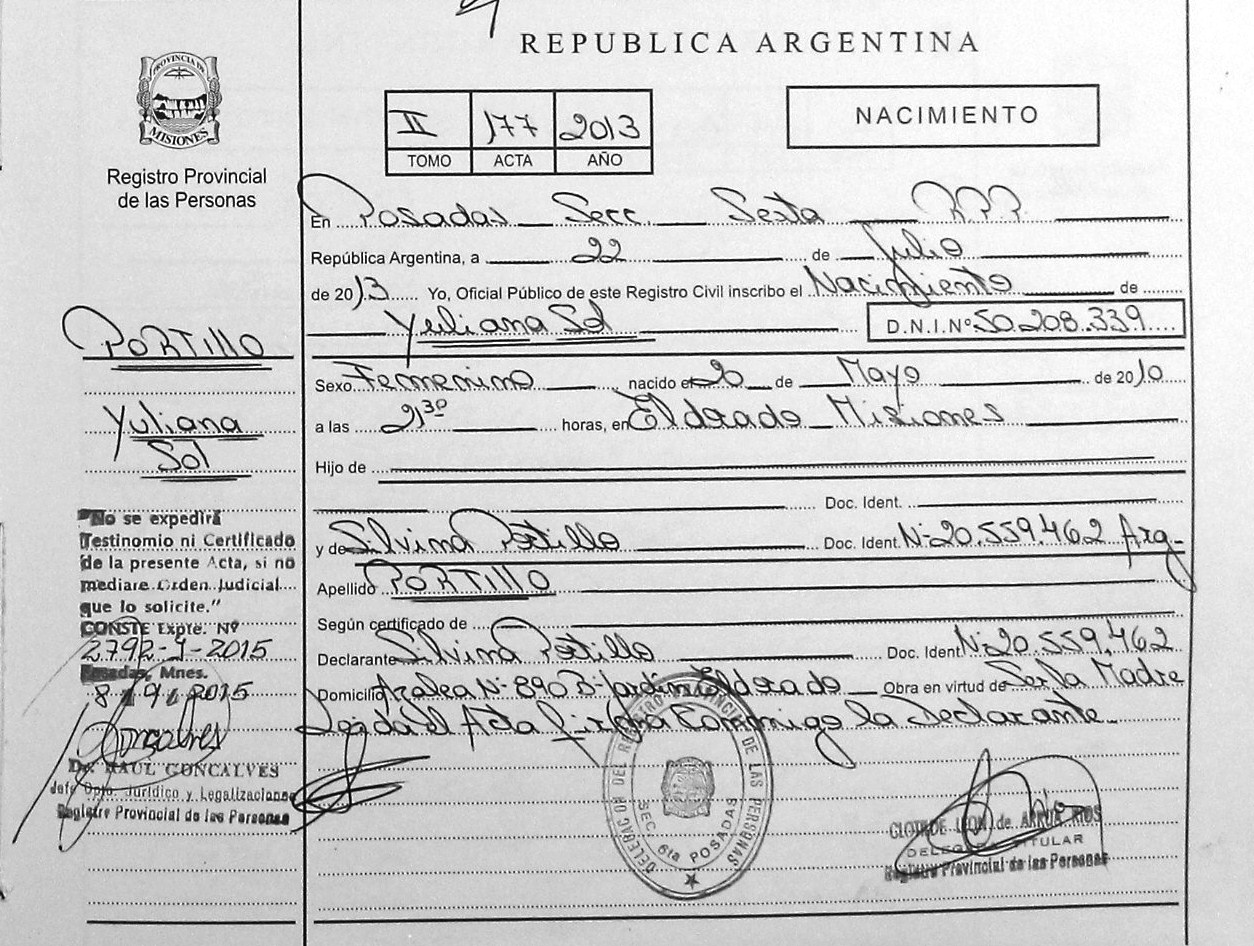 REPUBLICA ARGENTINA
PROVINCIA DE
MISIONES
Registro Provincial
de las Personas
II 177 2013
TOMO ACTA AÑO
NACIMIENTO
En Posadas Secc. Sexta R.P.P.
República Argentina, a 22 de Julio
de 2013 Yo, Oficial Público de este Registro Civil inscribo el Nacimiento de
Yuliana Sol D.N.I.Nº 50.208.339
Sexo Femenino nacido el 20 de Mayo de 2010
a las 21 30 horas, en Eldorado Misiones
Hijo de
Doc. Ident.
y de Silvina Portillo Doc. Ident. Nº 20.559.462 Arg.
Apellido PORTILLO
Según certificado de
Declarante Silvina Portillo Doc. Ident. Nº 20.559.462
Domicilio Azalea Nº 890 Bº Jardín Eldorado Obra en virtud de Ser la Madre
Leída el Acta firma conmigo la Declarante.
PORTILLO
Yuliana
Sol
"No se expedirá
Testimonio ni Certificado
de la presente Acta, si no
mediare Orden Judicial
que lo solicite."
CONSTE Expte. Nº
2792-Y-2015
Posadas, Mnes.
8 / 9 / 2015
Dr. RAUL GONCALVES
Jefe Dpto. Jurídico y Legalizaciones
Registro Provincial de las Personas
DELEGACION DEL REGISTRO PROVINCIAL DE LAS PERSONAS
SEC. 6ta POSADAS
CLOTILDE LEON de ARRUA RIOS
DELEGADA TITULAR
Registro Provincial de las Personas